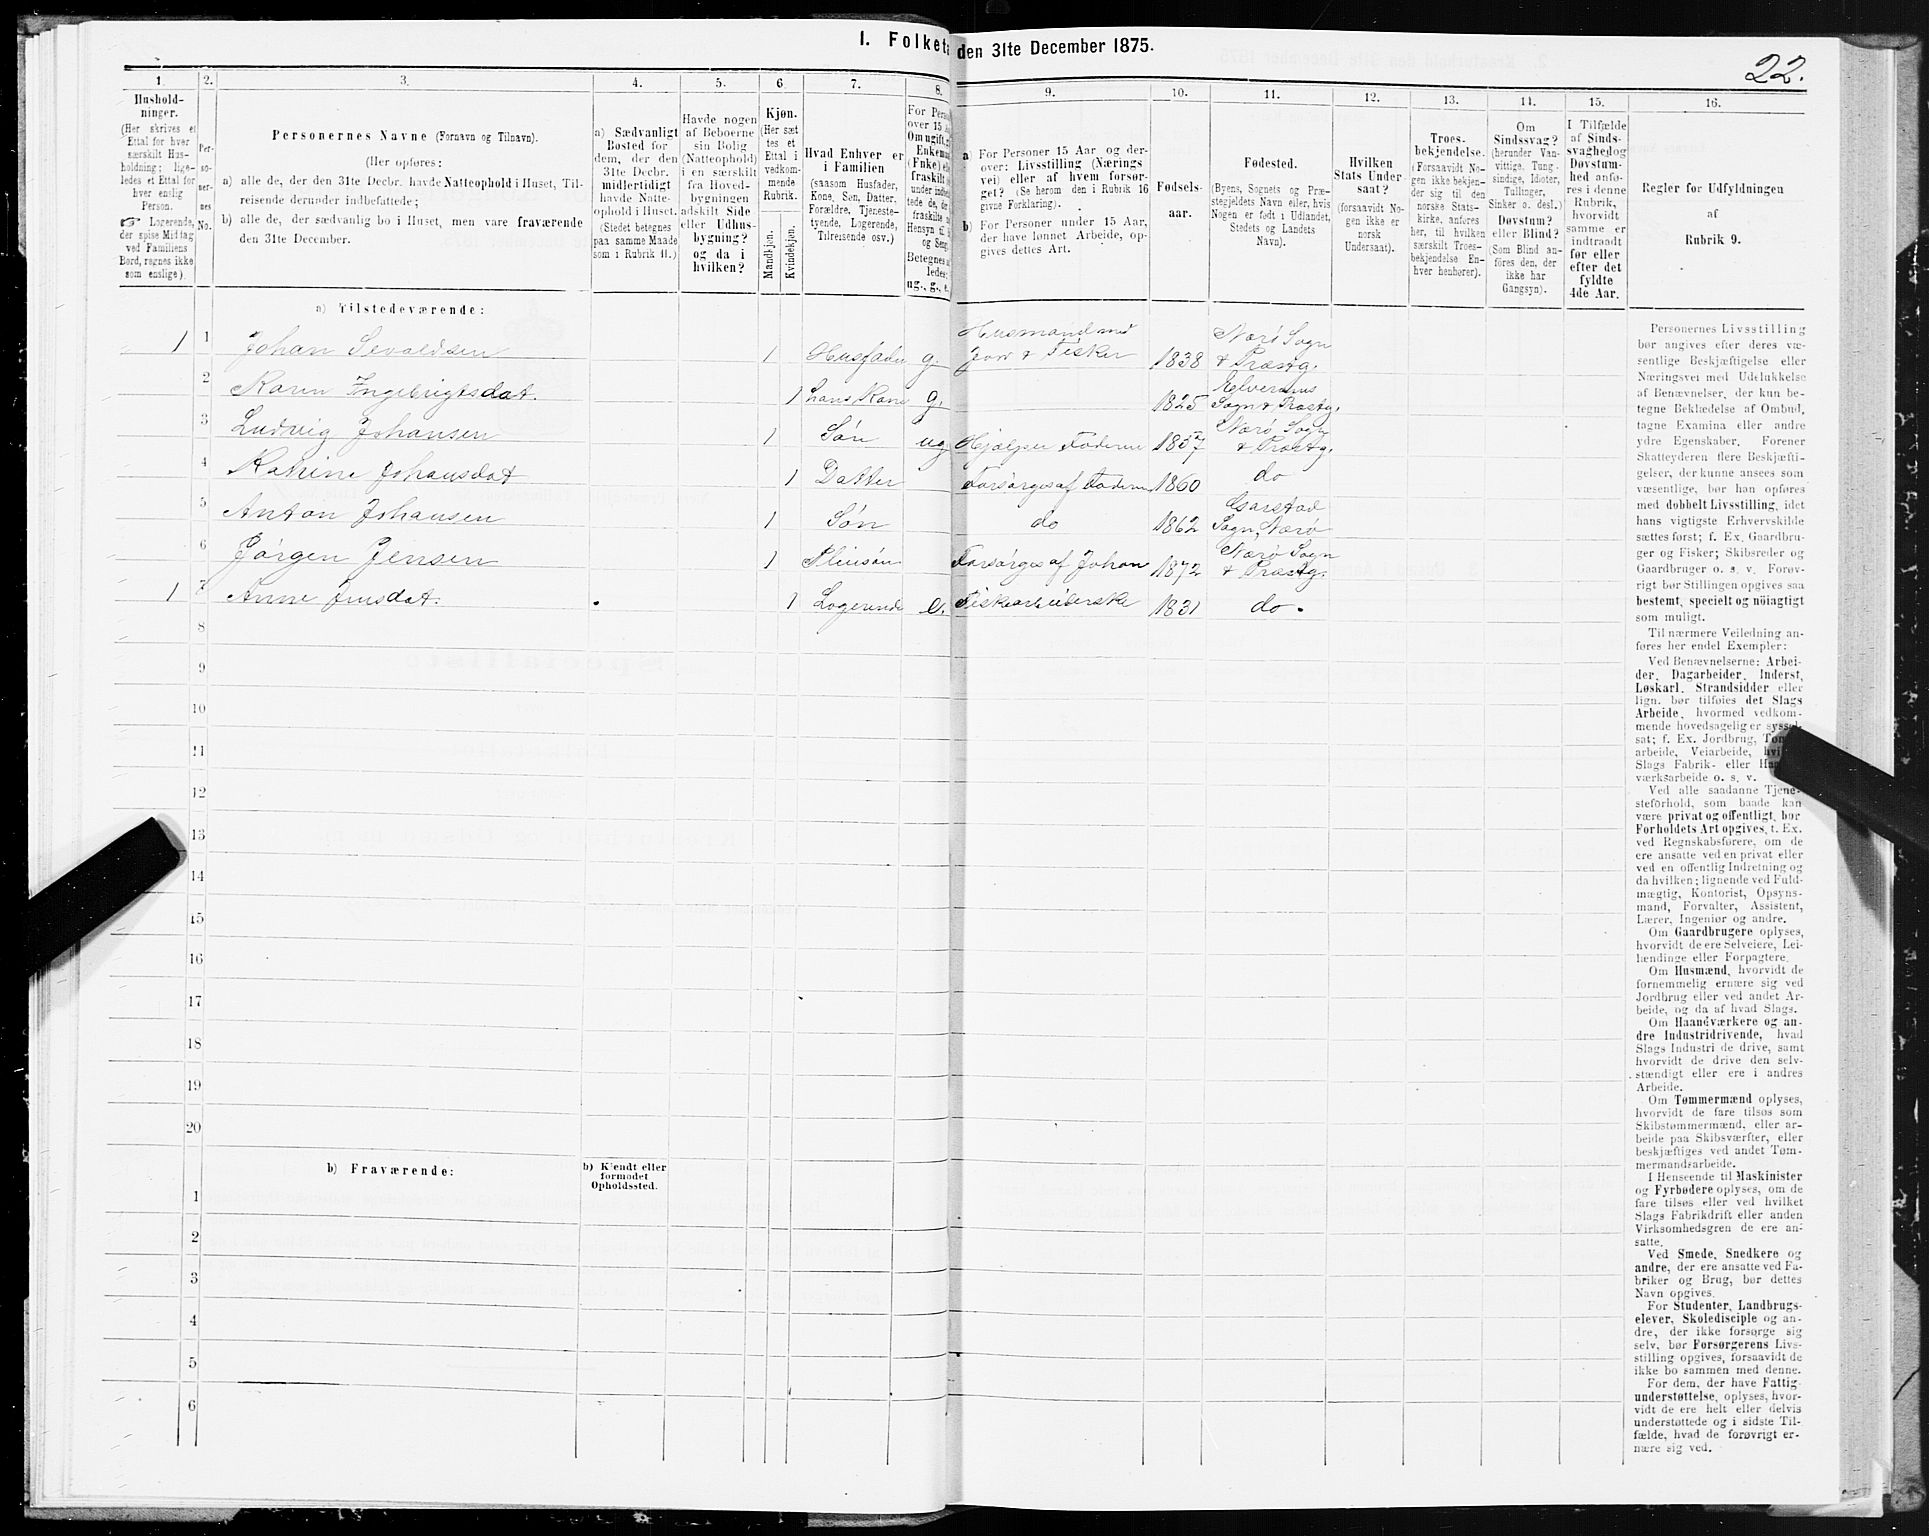 I. Folket den 31te December 1875.
22.
1. 2. 3. 4. 5. 6. 7. 8. 9. 10. 11. 12. 13. 14. 15. 16.
Hushold-
ninger.
(Her skrives et
Ettal for hver
særskilt Hus-
holdning; lige-
ledes et Ettal for
hver enslig
Person.
☞ Logerende,
der spise Middag
ved Familiens
Bord, regnes ikke
som enslige).
Per-
so-
ner-
nes
No.
Personernes Navne (Fornavn og Tilnavn).
(Her opføres:
a) alle de, der den 31te Decbr. havde Natteophold i Huset, Til-
reisende derunder indbefattede;
b) alle de, der sædvanlig bo i Huset, men vare fraværende
den 31te December.
a) Sædvanligt
Bosted for
dem, der den
31te Decbr.
midlertidigt
havde Natte-
ophold i Huset.
(Stedet betegnes
paa samme Maade
som i Rubrik 11.)
Havde nogen
af Beboerne
sin Bolig
(Natteophold)
i en særskilt
fra Hoved-
bygningen
adskilt Side
eller Udhus-
bygning?
og da i
hvilken?
Kjøn.
(Her sæt
tes et
Ettal i
vedkom-
mende
Rubrik.
Mandkjøn.
Kvindekjøn.
Hvad Enhver er
i Familien
(saasom Husfader,
Kone, Søn, Datter,
Forældre, Tjeneste-
tyende, Logerende,
Tilreisende osv.)
For Pers
over 15 A
Om ugift, g
Enkema
(Fnke) el
fraskilt
under indbe
tede de, der
fraskilte
Hensyn til
og Seng
Betegnes
ledes:
ug., g., e.
a) For Personer 15 Aar og der-
over: Livsstilling (Nærings
vei) eller af hvem forsør-
get? (Se herom den i Rubrik 16
givne Forklaring).
b) For Personer under 15 Aar,
der have lønnet Arbeide, op-
gives dettes Art.
Fødsels-
aar.
Fødested.
(Byens, Sognets og Præ-
stegjeldets Navn eller, hvis
Nogen er født i Udlandet,
Stedets og Landets
Navn).
Hvilken
Stats Under-
saat?
(forsaavidt No-
gen ikke er
norsk
Undersaat).
Troes-
bekjendelse.
(Forsaavidt No-
gen ikke bekjen-
der sig til den
norske Stats-
kirke, anføres
her, til hvilken
særskilt Troes-
bekjendelse En-
hver henhører).
Om
Sindssvag?
(herunder Van-
vittige, Tung-
sindige, Idioter,
Tullinger,
Sinker o. desl.)
Døvstum?
eller Blind?
(Som Blind an-
føres den, der
ikke har
Gangsyn).
I Tilfælde
af Sinds-
svaghed og
Døvstum-
hed anfø-
res i denne
Rubrik,
hvorvidt
samme er
indtraadt
før eller
efter det
fyldte
4de Aar.
Regler for Udfyldningen
af
Rubrik 9.
a) Tilstedeværende:
1 1 Johan Sevaldsen 1 Husfader g. Husmand med Jord & Fisker 1838 Nærö Sogn & Præstg.
2 Karen Ingebrigtsdat. 1 hans Kone g. 1825 Elverums Sogn & Præstg.
3 Ludvig Johansen 1 Søn ug Hjælper Faderen 1857 Nærö Sogn & Præstg.
4 Katrine Johansdat 1 Datter Forsørges af Faderen 1860 do
5 Anton Johansen 1 Søn do 1862 Garstad Sogn, Nærö
6 Jörgen Jensen 1 Pleiesøn Forsørges af Johan 1872 Nærö Sogn & Præstg.
1 7 Anne Jensdat. 1 Logerende e. Fiskearbeiderske 1831 do.
8
9
10
11
12
13
14
15
16
17
18
19
20
b) Fraværende:
b) Kjendt eller
formodet
Opholdssted.
1
2
3
4
5
6
Personernes Livsstilling
bør angives efter deres væ-
sentlige Beskjæftigelse eller
Næringsvei med Udelukkelse
af Benævnelser, der kun be-
tegne Beklædelse af Ombud,
tagne Examina eller andre
ydre Egenskaber. Forener
Skatteyderen flere Beskjæfti-
gelser, der kunne ansees som
væsentlige, bør han opføres
med dobbelt Livsstilling, idet
hans vigtigste Erhvervskilde
sættes først; f. Ex. Gaardbru-
ger og Fisker; Skibsreder og
Gaardbruger o. s. v. Forøv-
rigt bør Stillingen opgives saa
bestemt, specielt og nöiagtigt
som muligt.
Til nærmere Veiledning an-
føres her endel Exempler:
Ved Benævnelserne: Arbei-
der, Dagarbeider, Inderst,
Løskarl, Strandsidder eller
lign. bør tilføies det Slags
Arbeide, hvormed vedkom-
mende hovedsagelig er syssel-
sat; f. Ex. Jordbrug, Tøm
arbeide, Veiarbeide, hvi
Slags Fabrik- eller Haa
værksarbeide o. s. v.
Ved alle saadanne Tjene-
steforhold, som baade kan
være privat og offentligt, bør
Forholdets Art opgives, t. Ex.
ved Regnskabsførere, om de
ere ansatte ved en privat eller
ved en offentlig Indretning og
da hvilken; lignende ved Fuld-
mægtig, Kontorist, Opsyns-
mand, Forvalter, Assistent,
Lærer, Ingeniør og andre.
Om Gaardbrugere oplyses,
hvorvidt de ere Selveiere, Lei-
lændinge eller Forpagtere.
Om Husmænd, hvorvidt de
fornemmelig ernære sig ved
Jordbrug eller ved andet Ar-
beide, og da af hvad Slags.
Om Haandværkere og an-
dre Industridrivende, hvad
Slags Industri de drive, samt
hvorvidt de drive den selv-
stændigt eller ere i andres
Arbeide.
Om Tømmermænd oplyses,
hvorvidt de fare tilsøs som
Skibstømmermænd, eller ar-
beide paa Skibsværfter, eller
beskjæftiges ved andet Tøm-
mermandsarbeide.
I Henseende til Maskinister
og Fyrbødere oplyses, om de
fare tilsøs eller ved hvilket
Slags Fabrikdrift eller anden
Virksomhedsgren de ere an-
satte.
Ved Smede, Snedkere og
andre, der ere ansatte ved Fa-
briker og Brug, bør dettes
Navn opgives.
For Studenter, Landbrugs-
elever, Skoledisciple og an-
dre, der ikke forsørge sig
selv, bør Forsørgerens Livs-
stilling opgives, forsaavidt de
ikke bo sammen med denne.
For dem, der have Fattig-
understøttelse, oplyses, hvor-
vidt de ere helt eller delvis
understøttede og i sidste Til-
fælde, hvad de forøvrigt er-
nære sig ved.